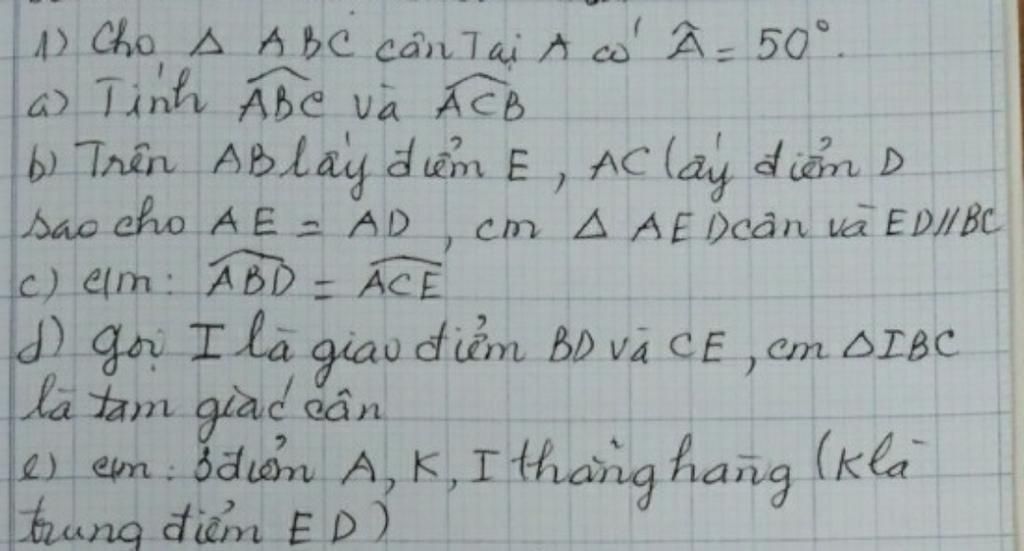 1) Cho Δ ABC cân Tại A có Â = 50°.
a) Tính ABC và ACB
b) Trên AB lấy điểm E, AC lấy điểm D
sao cho AE = AD, cm Δ AED cân và ED//BC
c) c/m: ABD = ACE
d) gọi I là giao điểm BD và CE, cm ΔIBC
là tam giác cân
e) cm: 3 điểm A, K, I thẳng hàng (K là
trung điểm ED)